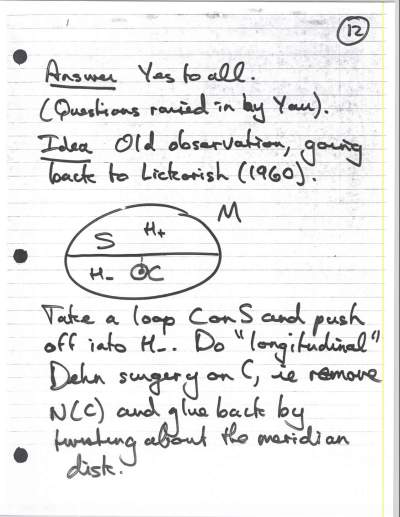 12
Answer Yes to all.
(Questions raised in by Yau).
Idea Old observation, going
back to Lickorish (1960).
M
S H+
H- C
Take a loop C on S and push
off into H-. Do "longitudinal"
Dehn surgery on C, ie remove
N(C) and glue back by
twisting about the meridian
disk.